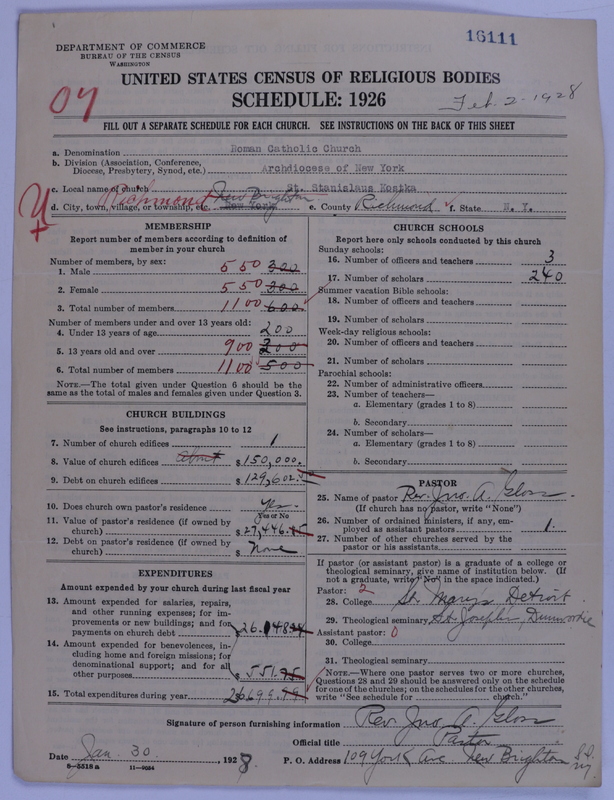 16111
DEPARTMENT OF COMMERCE
BUREAU OF THE CENSUS
WASHINGTON
UNITED STATES CENSUS OF RELIGIOUS BODIES
07
SCHEDULE: 1926
Feb. 2-1928
FILL OUT A SEPARATE SCHEDULE FOR EACH CHURCH. SEE INSTRUCTIONS ON THE BACK OF THIS SHEET
a. Denomination Roman Catholic Church
b. Division (Association, Conference,
Diocese, Presbytery, Synod, etc.) Archdiocese of New York
c. Local name of church St. Stanislaus Kostka
d. City, town, village, or township, etc. Richmond New Brighton New York e. County Richmond f. State N. Y.
MEMBERSHIP
Report number of members according to definition of
member in your church
Number of members, by sex:
1. Male 550 300
2. Female 550 300
3. Total number of members 1100 600
Number of members under and over 13 years old:
4. Under 13 years of age 200
5. 13 years old and over 900
6. Total number of members 1100 500
NOTE.—The total given under Question 6 should be the
same as the total of males and females given under Question 3.
CHURCH BUILDINGS
See instructions, paragraphs 10 to 12
7. Number of church edifices 1
8. Value of church edifices about $ 150,000.
9. Debt on church edifices $ 129,602.
10. Does church own pastor's residence Yes
Yes or No
11. Value of pastor's residence (if owned by
church) $ 27,446.
12. Debt on pastor's residence (if owned by
church) $ None
EXPENDITURES
Amount expended by your church during last fiscal year
13. Amount expended for salaries, repairs,
and other running expenses; for im-
provements or new buildings; and for
payments on church debt 26.148
14. Amount expended for benevolences, in-
cluding home and foreign missions; for
denominational support; and for all
other purposes $ 551.
15. Total expenditures during year 26,699.
CHURCH SCHOOLS
Report here only schools conducted by this church
Sunday schools:
16. Number of officers and teachers 3
17. Number of scholars 240
Summer vacation Bible schools:
18. Number of officers and teachers
19. Number of scholars
Week-day religious schools:
20. Number of officers and teachers
21. Number of scholars
Parochial schools:
22. Number of administrative officers
23. Number of teachers—
a. Elementary (grades 1 to 8)
b. Secondary
24. Number of scholars—
a. Elementary (grades 1 to 8)
b. Secondary
PASTOR
25. Name of pastor Rev. Jno. A. Gloss
(If church has no pastor, write "None")
26. Number of ordained ministers, if any, em-
ployed as assistant pastors 1.
27. Number of other churches served by the
pastor or his assistants
If pastor (or assistant pastor) is a graduate of a college or
theological seminary, give name of institution below. (If
not a graduate, write "No" in the space indicated.)
Pastor: 2
28. College St. Mary's Detroit
29. Theological seminary St. Joseph's, Dunwoodie
Assistant pastor: 0
30. College
31. Theological seminary
NOTE.—Where one pastor serves two or more churches,
Questions 28 and 29 should be answered only on the schedule
for one of the churches; on the schedules for the other churches,
write "See schedule for church."
Signature of person furnishing information Rev. Jno. A. Gloss
Official title Pastor
Date Jan. 30 , 1928. P. O. Address 109 York Ave New Brighton S.I. N.Y.
8-5518 a 11-9054